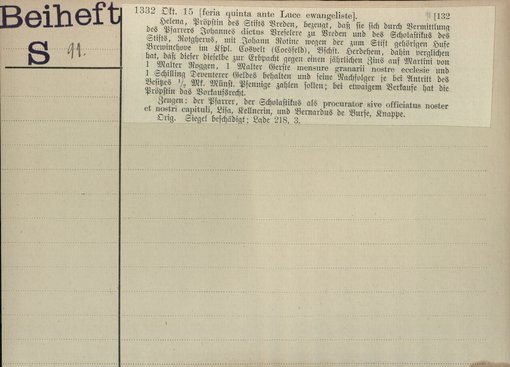 Beiheft
S 91.
1332 Okt. 15 [feria quinta ante Luce ewangeliste]. [132
Helena, Pröpstin des Stifts Vreden, bezeugt, daß sie sich durch Vermittlung
des Pfarrers Johannes dictus Vreselere zu Vreden und des Scholastikus des
Stifts, Rotgherus, mit Johann Rotine wegen der zum Stift gehörigen Hufe
Brewinchove im Kspl. Coswelt (Coesfeld), Bschft. Herdehem, dahin verglichen
hat, daß dieser dieselbe zur Erbpacht gegen einen jährlichen Zins auf Martini von
1 Malter Roggen, 1 Malter Gerste mensure granarii nostre ecclesie und
1 Schilling Deventerer Geldes behalten und seine Nachfolger je bei Antritt des
Besitzes 1/2 Mk. Münst. Pfennige zahlen sollen; bei etwaigem Verkaufe hat die
Pröpstin das Vorkaufsrecht.
Zeugen: der Pfarrer, der Scholastikus als procurator sive officiatus noster
et nostri capituli, Lisa, Kellnerin, und Bernardus de Burse, Knappe.
Orig. Siegel beschädigt; Lade 218, 3.